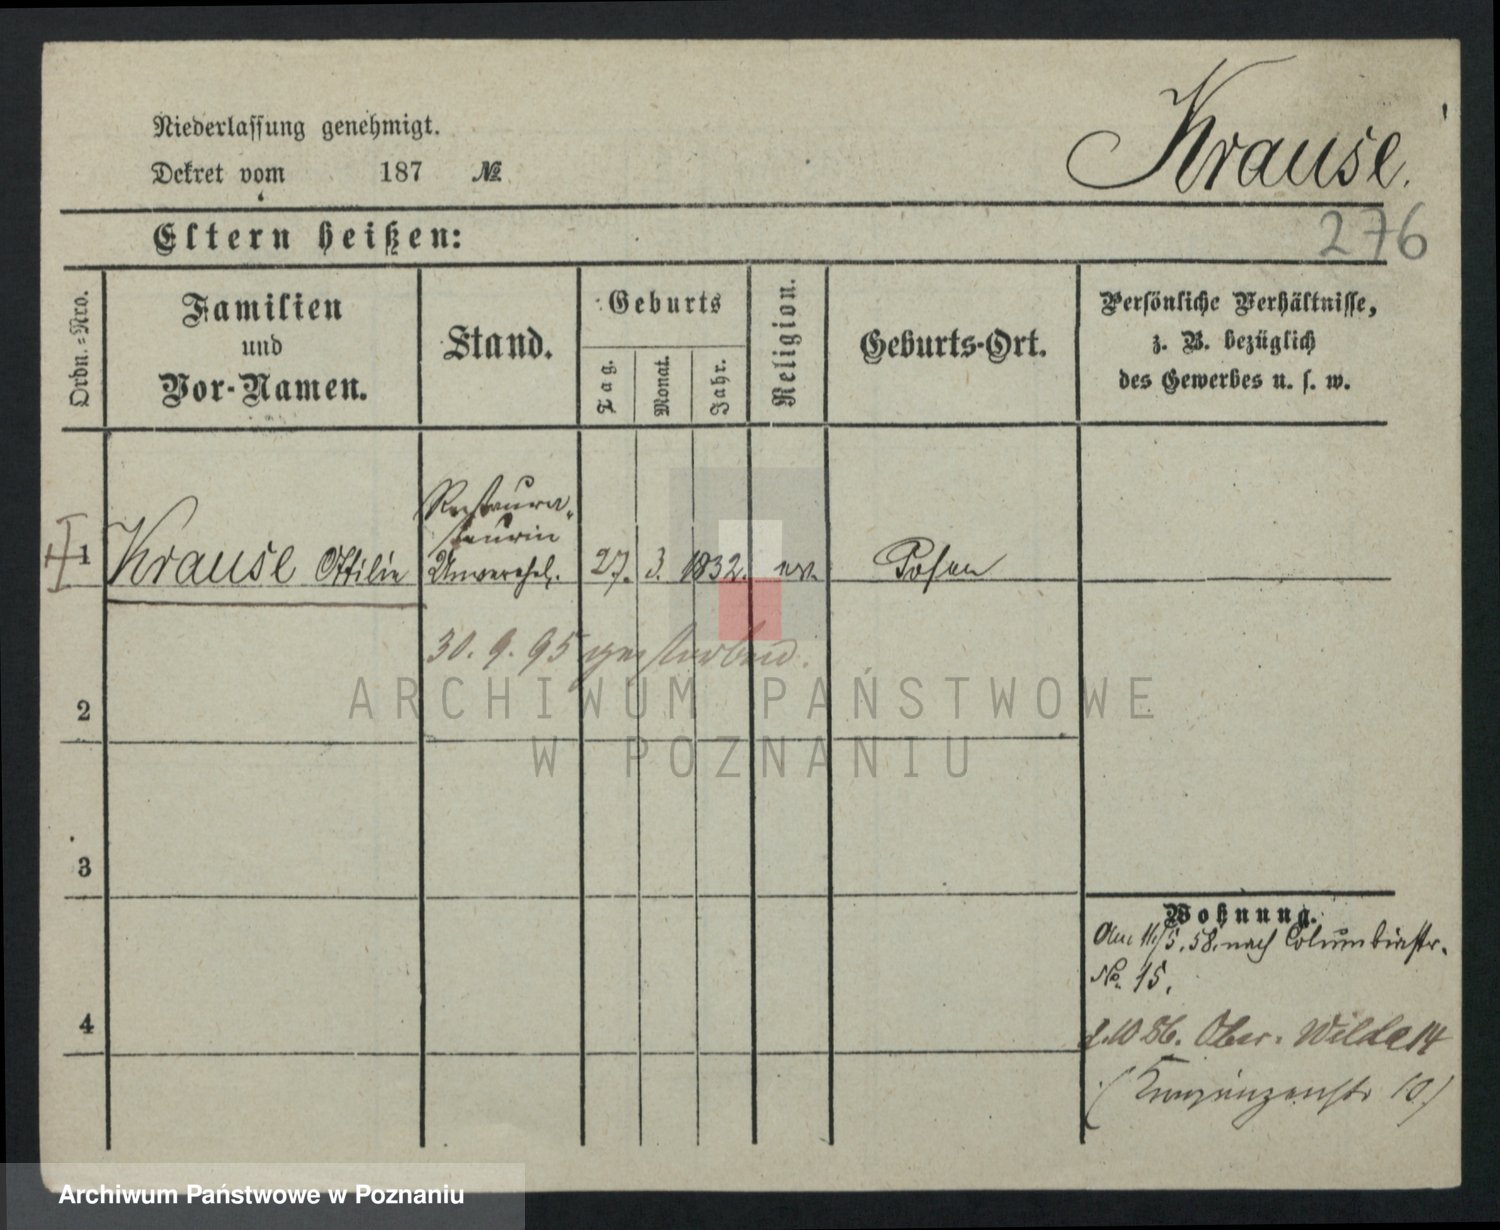 Niederlassung genehmigt.
Dekret vom 187 №
Krause.
276
Eltern heißen:
Ordn.=Nro.
Familien
und
Vor-Namen.
Stand.
Geburts
Tag.
Monat.
Jahr.
Religion.
Geburts-Ort.
Persönliche Verhältnisse,
z. B. bezüglich
des Gewerbes u. s. w.
Restaura-
teurin
1 Krause Ottilie Unverehel. 27. 3. 1832. ev. Posen
30. 9. 95 gestorben.
2
3
4
Wohnung.
Am 11/5. 58. nach Columbiastr.
No. 15.
10 86. Ober-Wilda 14
(Kronprinzenstr 10)
ARCHIWUM PAŃSTWOWE
W POZNANIU
Archiwum Państwowe w Poznaniu